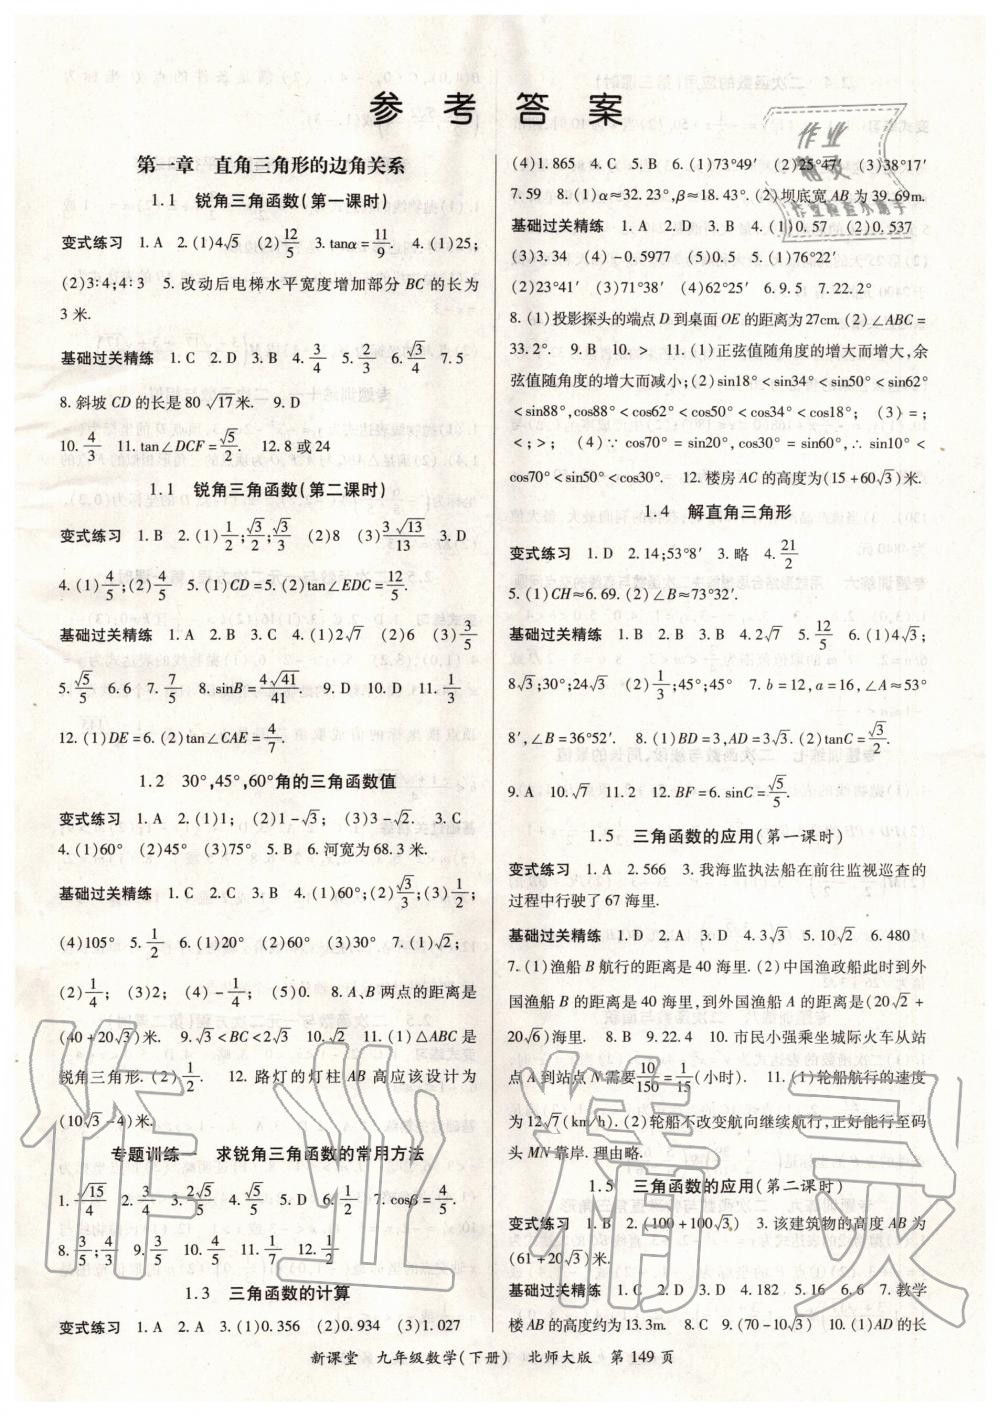 参考答案
第一章　直角三角形的边角关系
1.1　锐角三角函数(第一课时)
变式练习　1. A　2. (1)4√5　(2)12/5　3. tanα=11/9.　4. (1)25;
(2)3∶4;4∶3　5. 改动后电梯水平宽度增加部分 BC 的长为
3 米.
基础过关精练　1. C　2. D　3. B　4. 3/4　5. 2/3　6. √3/4　7. 5
8. 斜坡 CD 的长是 80 √17米.　9. D
10. 4/3　11. tan∠DCF=√5/2.　12. 8 或 24
1.1　锐角三角函数(第二课时)
变式练习　1. B　2. (1)1/2;√3/2;√3/3　(2)8　(3)3√13/13　3. D
4. (1)4/5;(2)4/5　5. (1)CD=5. (2)tan∠EDC=12/5.
基础过关精练　1. A　2. B　3. C　4. (1)2√7　(2)6　(3)3/5
5. √5/5　6. 6　7. 7/5　8. sinB=4√41/41　9. D　10. D　11. 1/3
12. (1)DE=6. (2)tan∠CAE=4/7.
1.2　30°,45°,60°角的三角函数值
变式练习　1. A　2. (1)1;　(2)1-√3;　(3)3-√2.　3. C
4. (1)60°　(2)45°　(3)75°　5. B　6. 河宽为 68.3 米.
基础过关精练　1. C　2. C　3. B　4. (1)60°;(2)√3/3;(3)1/2;
(4)105°　5. 1/2　6. (1)20°　(2)60°　(3)30°　7. (1)√2;
(2)1/4;　(3)2;　(4)-1/4;　(5)0.　8. A、B 两点的距离是
(40+20√3)米.　9. √3<BC<2√3　10. √2　11. (1)△ABC 是
锐角三角形. (2)1/2.　12. 路灯的灯柱 AB 高应该设计为
(10√3-4)米.
专题训练一　求锐角三角函数的常用方法
1. √15/4　2. 3/4　3. 2√5/5　4. √5/5　5. D　6. 1/2　7. cosβ=4/5.
8. 3/5;4/3　9. 3/5　10. 4/5　11. 1/7　12. 1/2
1.3　三角函数的计算
变式练习　1. A　2. A　3. (1)0.356　(2)0.934　(3)1.027
(4)1.865　4. C　5. B　6. (1)73°49′　(2)25°47′　(3)38°17′
7. 59　8. (1)α≈32.23°,β≈18.43°. (2)坝底宽 AB 为 39.69m.
基础过关精练　1. A　2. D　3. B　4. (1)0.57　(2)0.537
(3)3.34　(4)-0.5977　(5)0.5　5. (1)76°22′
(2)23°41′　(3)71°38′　(4)62°25′　6. 9.5　7. 22.2°
8. (1)投影探头的端点 D 到桌面 OE 的距离为27cm. (2)∠ABC=
33.2°.　9. B　10. >　11. (1)正弦值随角度的增大而增大,余
弦值随角度的增大而减小;(2)sin18°<sin34°<sin50°<sin62°
<sin88°,cos88°<cos62°<cos50°<cos34°<cos18°;　(3)=;
<;>;　(4)∵cos70°=sin20°,cos30°=sin60°,∴sin10°<
cos70°<sin50°<cos30°.　12. 楼房 AC 的高度为(15+60√3)米.
1.4　解直角三角形
变式练习　1. D　2. 14;53°8′　3. 略　4. 21/2
5. (1)CH≈6.69. (2)∠B≈73°32′.
基础过关精练　1. B　2. B　3. B　4. 2√7　5. 12/5　6. (1)4√3;
8√3;30°;24√3　(2)1/3;45°;45°　7. b=12,a=16,∠A≈53°
8′,∠B=36°52′.　8. (1)BD=3,AD=3√3. (2)tanC=√3/2.
9. A　10. √7　11. 2　12. BF=6. sinC=√5/5.
1.5　三角函数的应用(第一课时)
变式练习　1. A　2. 566　3. 我海监执法船在前往监视巡查的
过程中行驶了 67 海里.
基础过关精练　1. D　2. A　3. D　4. 3√3　5. 10√2　6. 480
7. (1)渔船 B 航行的距离是 40 海里. (2)中国渔政船此时到外
国渔船 B 的距离是 40 海里,到外国渔船 A 的距离是(20√2+
20√6)海里.　8. B　9. 22.4　10. 市民小强乘坐城际火车从站
点 A 到站点 N 需要10/150=1/15(小时).　11. (1)轮船航行的速度
为 12√7(km/h). (2)轮船不改变航向继续航行,正好能行至码
头 MN 靠岸. 理由略.
1.5　三角函数的应用(第二课时)
变式练习　1. B　2. (100+100√3)　3. 该建筑物的高度 AB 为
(61+20√3)米.
基础过关精练　1. C　2. D　3. D　4. 182　5. 16　6. 6　7. 教学
楼 AB 的高度约为 13.3m.　8. C　9. (70-10√3)　10. (1)AD 的长
新课堂　九年级数学(下册)　北师大版　第 149 页
作业
精灵
作业检查小助手
作业精灵